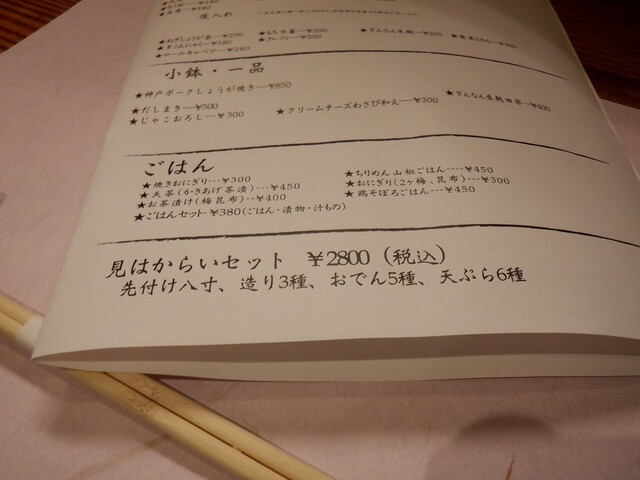 焼入れ
★ねぎしょうが天--¥250 ★もち巾着--¥200
★糸こんにゃく--¥180
★ロールキャベツ--¥280
小鉢・一品
★神戸ポークしょうが焼き--¥850
★だしまき--¥500 ★クリームチーズわさび和え----¥300
★じゃこおろし--¥300
ごはん
★焼きおにぎり---¥300 ★ちりめん山椒ごはん----¥450
★天茶(かきあげ茶漬)---¥450 ★おにぎり(2ヶ梅、昆布)---¥300
★お茶漬け(梅昆布)--¥400 ★鶏そぼろごはん---¥450
★ごはんセット¥380(ごはん・漬物・汁もの)
見はからいセット ¥2800（税込）
先付け八寸、造り3種、おでん5種、天ぷら6種